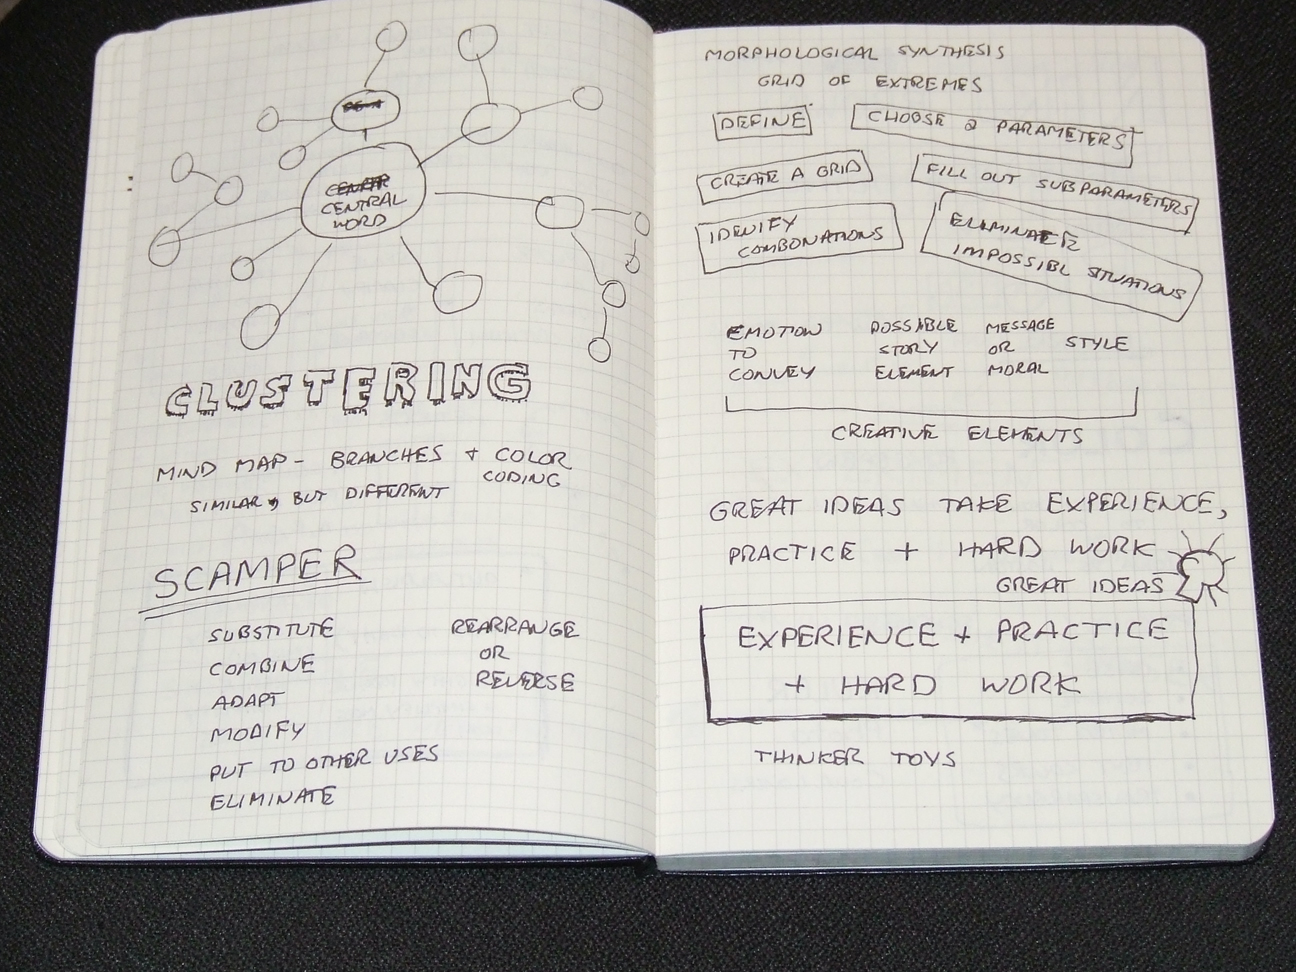 CENTRAL
WORD
CLUSTERING
MIND MAP - BRANCHES + COLOR
CODING
SIMILAR, BUT DIFFERENT
SCAMPER
SUBSTITUTE
COMBINE
ADAPT
MODIFY
PUT TO OTHER USES
ELIMINATE
REARRANGE
OR
REVERSE
MORPHOLOGICAL SYNTHESIS
GRID OF EXTREMES
DEFINE
CHOOSE 2 PARAMETERS
CREATE A GRID
FILL OUT SUBPARAMETERS
IDENIFY
COMBONATIONS
ELIMINATE
IMPOSSIBL SITUATIONS
EMOTION
TO
CONVEY
POSSIBLE
STORY
ELEMENT
MESSAGE
OR
MORAL
STYLE
CREATIVE ELEMENTS
GREAT IDEAS TAKE EXPERIENCE,
PRACTICE + HARD WORK
GREAT IDEAS
EXPERIENCE + PRACTICE
+ HARD WORK
THINKER TOYS